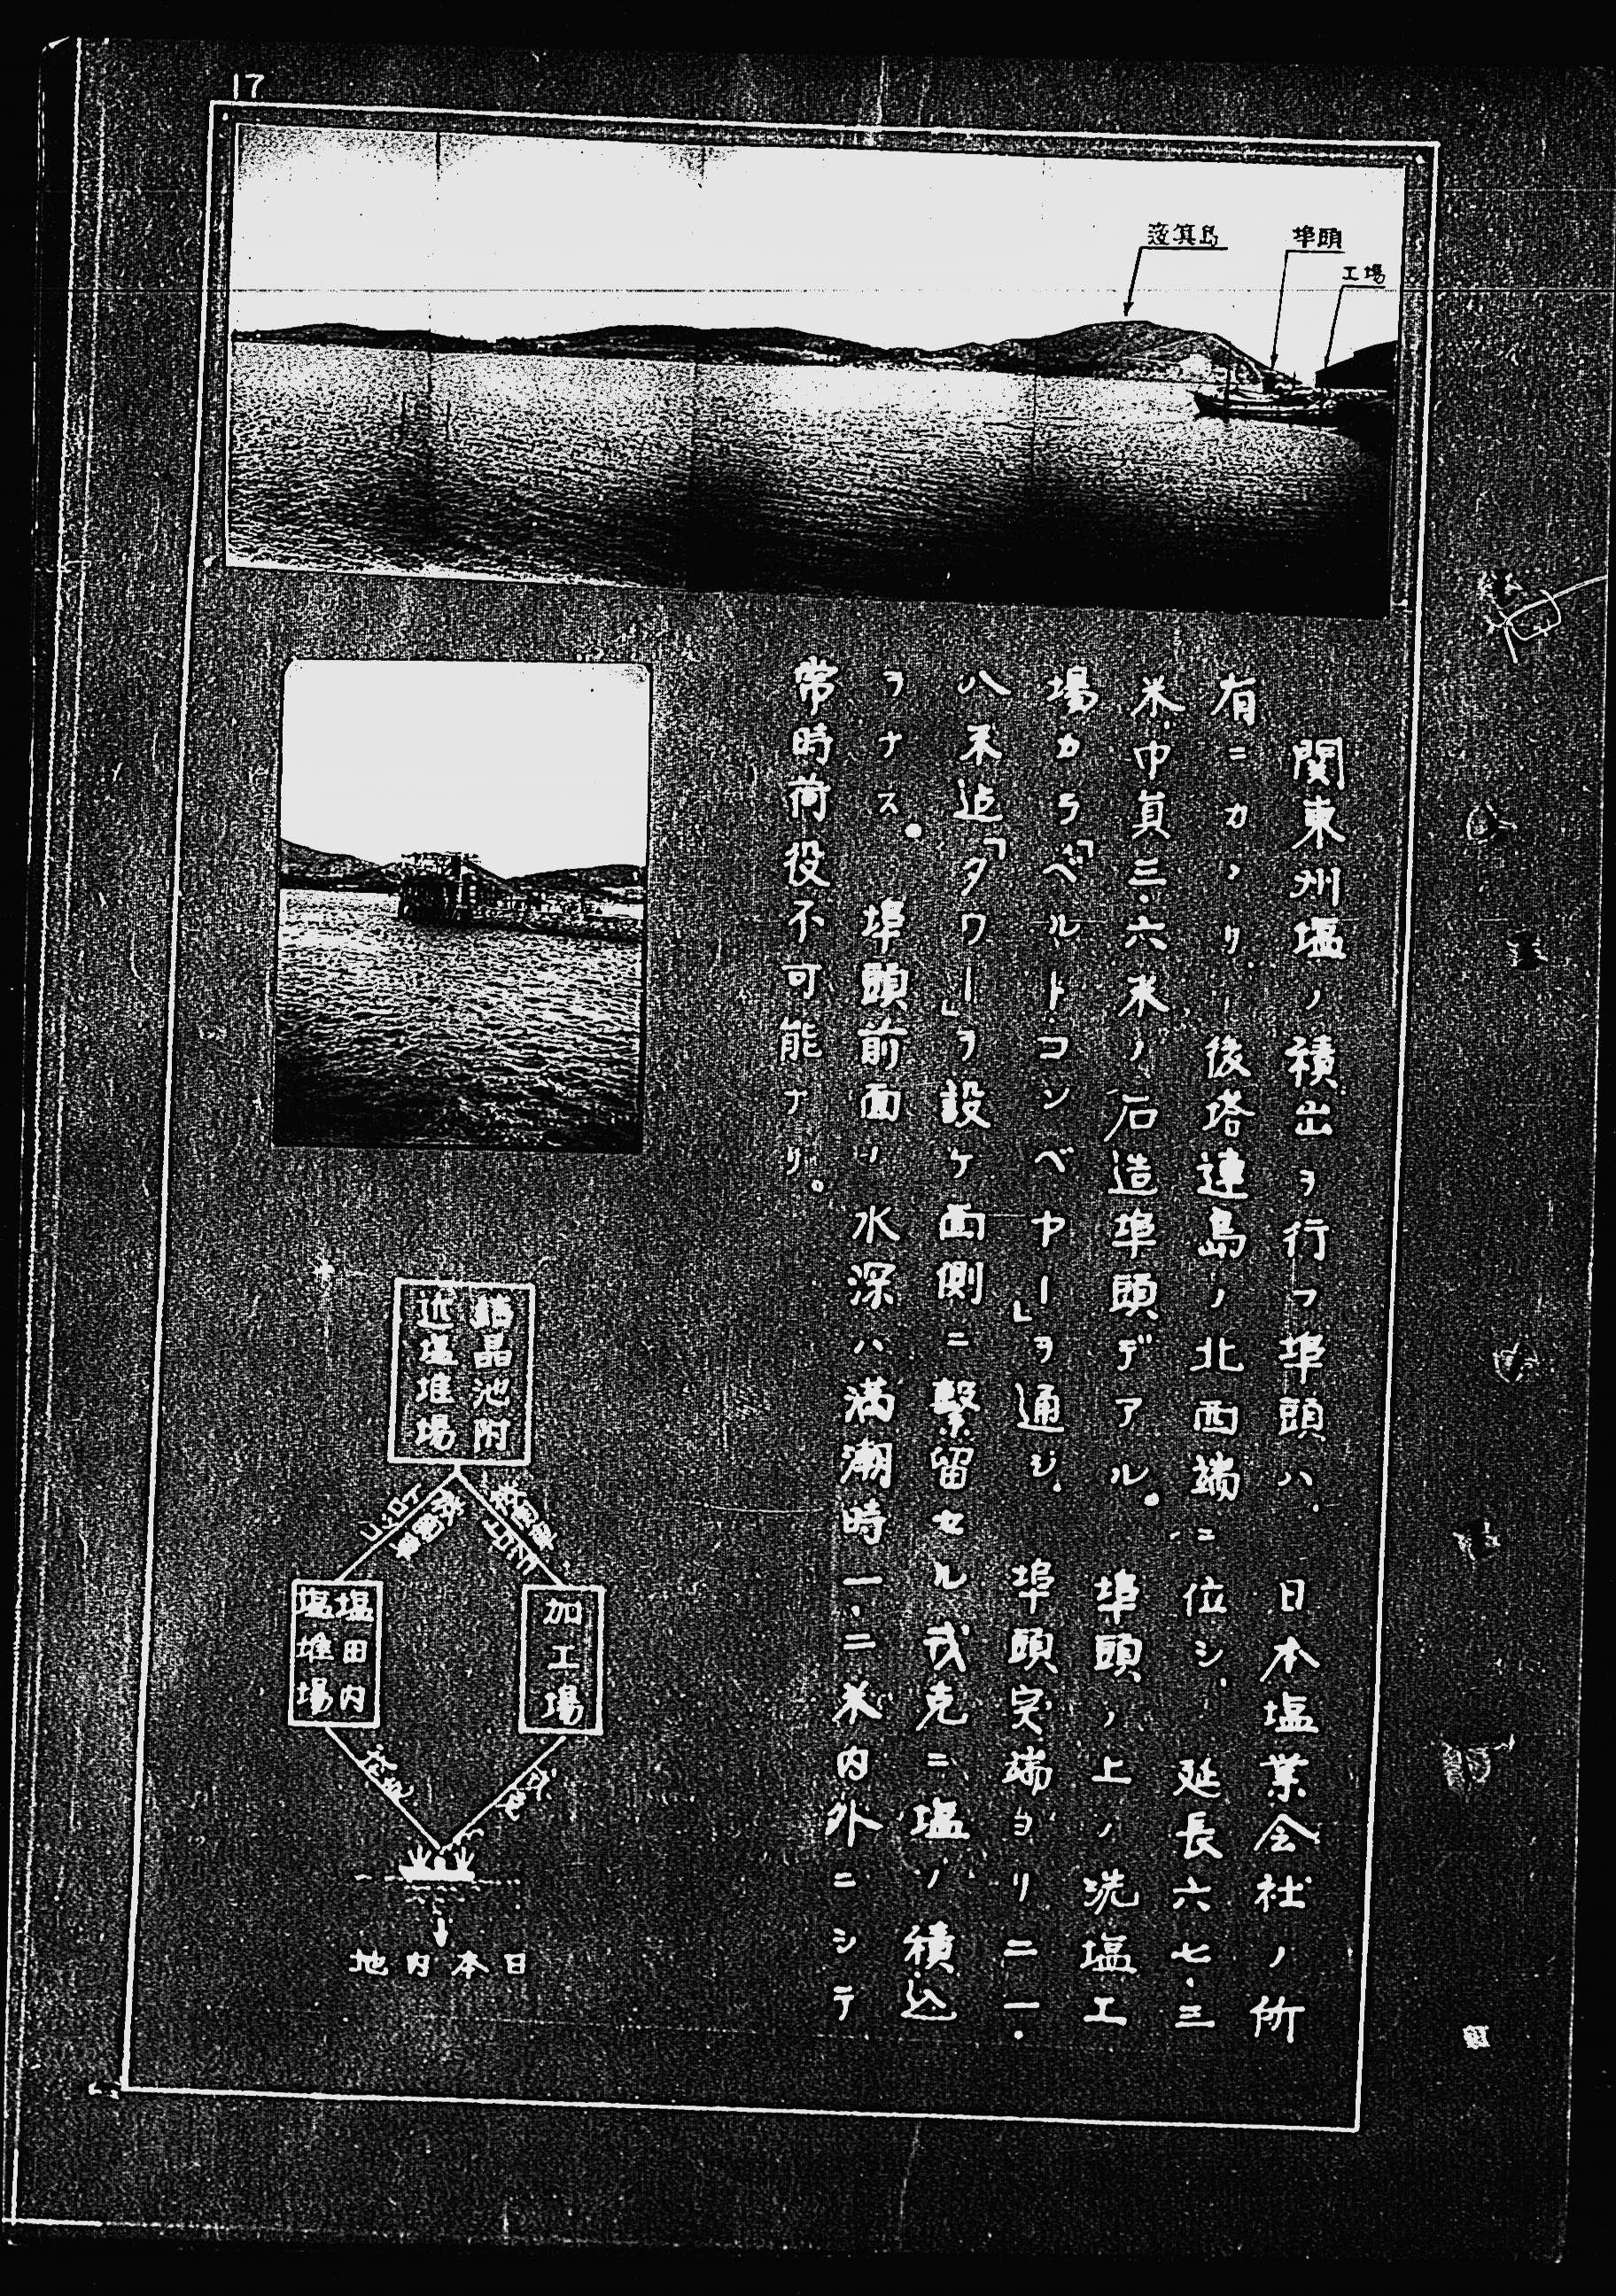 17
簸箕島
埠頭
工場
関東州塩ノ積出ヲ行フ埠頭ハ、日本塩業会社ノ所
有ニカヽリ、後塔連島ノ北西端ニ位シ、延長六七・三
米、巾員三・六米ノ石造埠頭デアル。埠頭ノ上ノ洗塩工
場カラ「ベルトコンベヤー」ヲ通ジ、埠頭突端ヨリ二一・
八米迠「タワー」ヲ設ケ両側ニ繋留セル戎克ニ塩ノ積込
ヲナス。埠頭前面ノ水深ハ満潮時一・二米内外ニシテ
常時荷役不可能ナリ。
結晶池附
近塩堆場
加工場
塩田内
塩堆場
日本内地